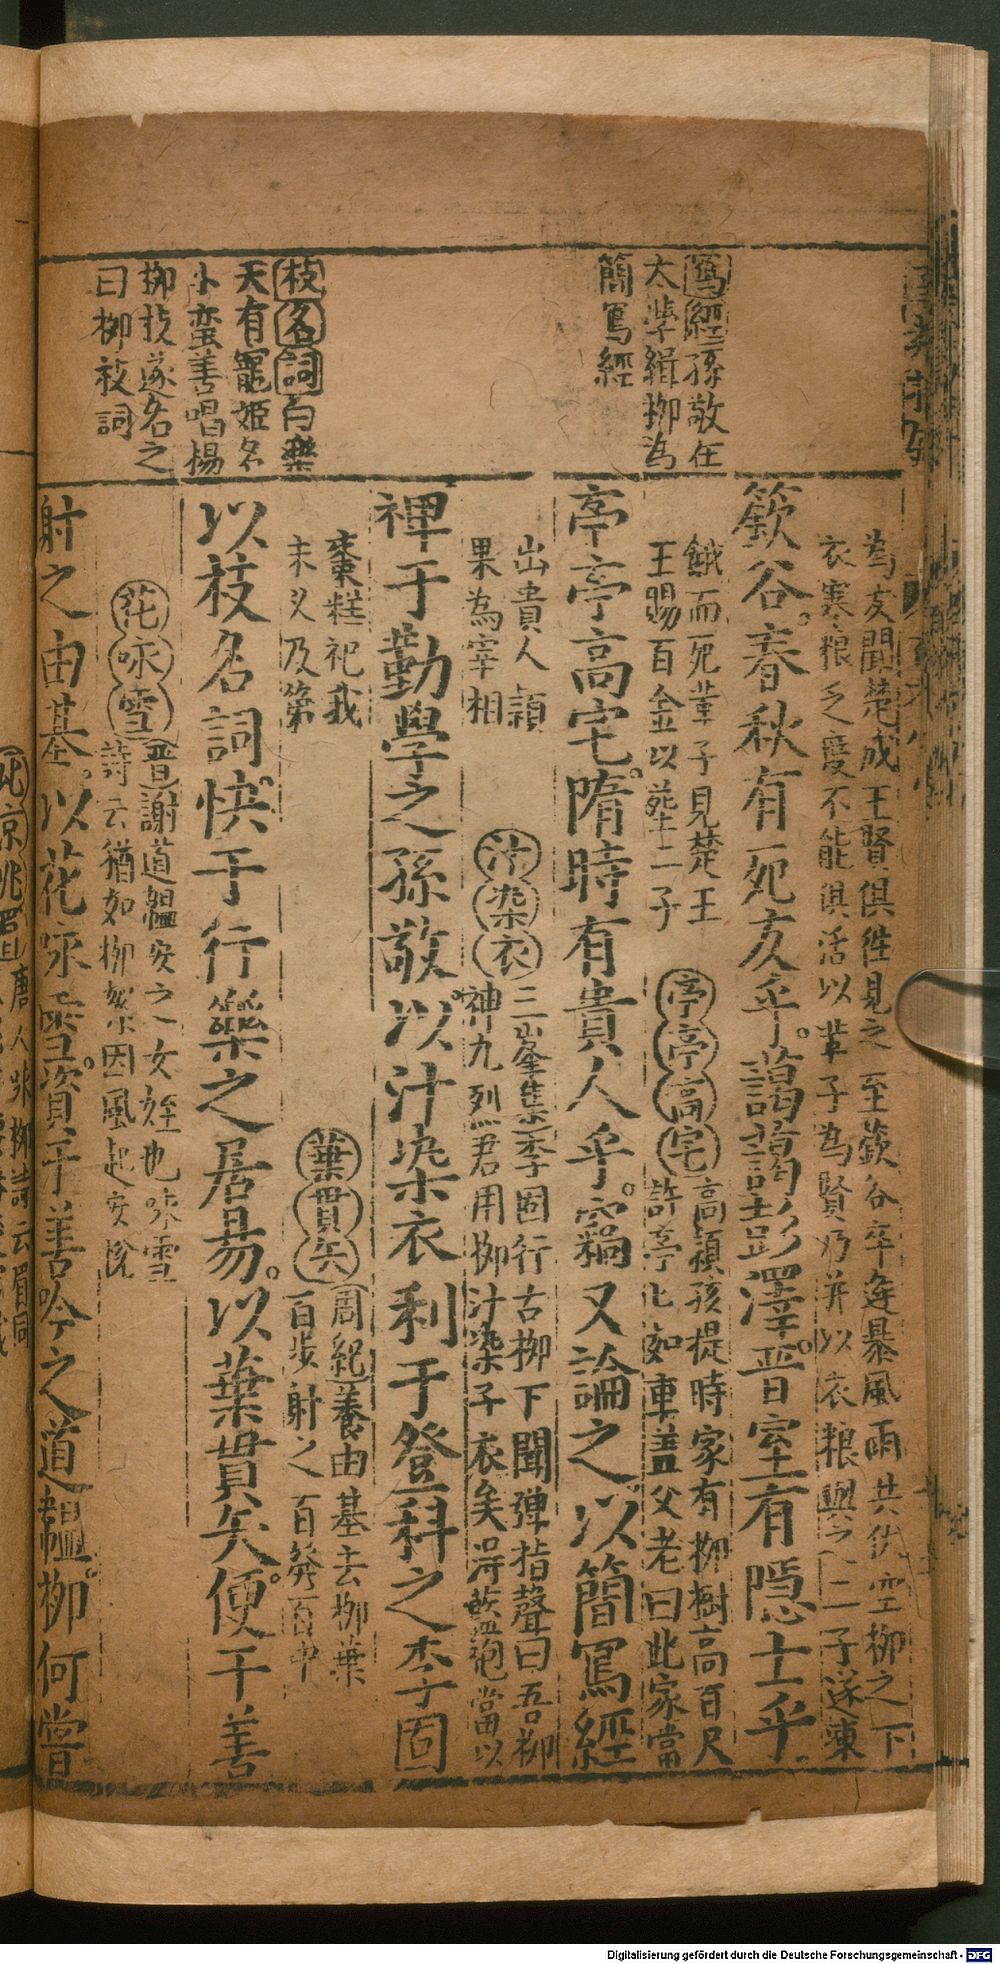 寫經孫敬在
太學緝柳為
簡寫經
枝名詞白樂
天有寵姬名
小蛮善唱楊
柳枝遂名之
曰柳枝詞
為友聞楚成王賢俱徃見之至欽谷卒逢暴風雨共伏空柳之下
衣寒粮乏度不能俱活以革子為賢乃并以衣粮與之二子遂凍
欽谷春秋有死友乎藹藹彭澤晋室有隠士乎
餓而死革子見楚王
王賜百金以塟二子
亭亭高宅高頴孩提時家有柳樹高百尺
許亭亭如車盖父老曰此家當
亭亭高宅隋時有貴人乎竊又論之以簡寫經
出貴人頴
果為宰相
汁染衣三峯集李固行古柳下聞弹指聲曰吾柳
神九烈君用柳汁染子衣矣淂藍袍當以
禆于勤學之孫敬以汁染衣利于登科之李固
棗糕祀我
未乆及第
葉貫矢周紀養由基去柳葉
百步射之百發百中
以枝名詞快于行樂之居昜以葉貫矢便于善
花咏雪晋謝道韞安之女姪也咏雪
詩云猶如柳絮因風起安悅
射之由基以花咏雪資于善吟之道韞柳何嘗
唐人咏柳詩云眉同
Digitalisierung gefördert durch die Deutsche Forschungsgemeinschaft - DFG